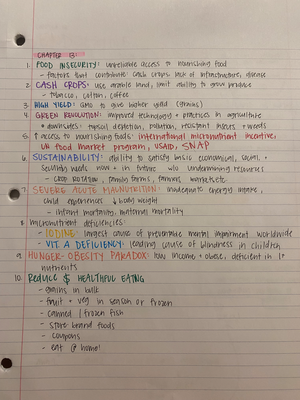 CHAPTER 13:
1. FOOD INSECURITY: unreliable access to nourishing food
- factors that contribute: cash crops, lack of infrastructure, disease
2. CASH CROPS: use arable land, limit ability to grow produce
- tobacco, cotton, coffee
3. HIGH YIELD: GMO to give higher yield (grains)
4. GREEN REVOLUTION: improved technology + practices in agriculture
* downsides: topsoil depletion, pollution, resistant insects + weeds
5. ↑ access to nourishing foods: international micronutrient incentive,
UN food market program, USAID, SNAP
6. SUSTAINABILITY: ability to satisfy basic economical, social +
security needs now + in future w/o undermining resources
- CROP ROTATION, family farms, farmers markets etc.
7. SEVERE ACUTE MALNUTRITION: inadequate energy intake,
child experiences ↓ body weight
- infant mortality, maternal mortality
8. micronutrient deficiencies:
- IODINE: largest cause of preventable mental impairment worldwide
- VIT. A DEFICIENCY: leading cause of blindness in children
9. HUNGER-OBESITY PARADOX: low income + obese, deficient in 1+
nutrients
10. Reduce $ HEALTHFUL EATING
- grains in bulk
- fruit + veg in season or frozen
- canned / frozen fish
- store brand foods
- coupons
- eat @ home!